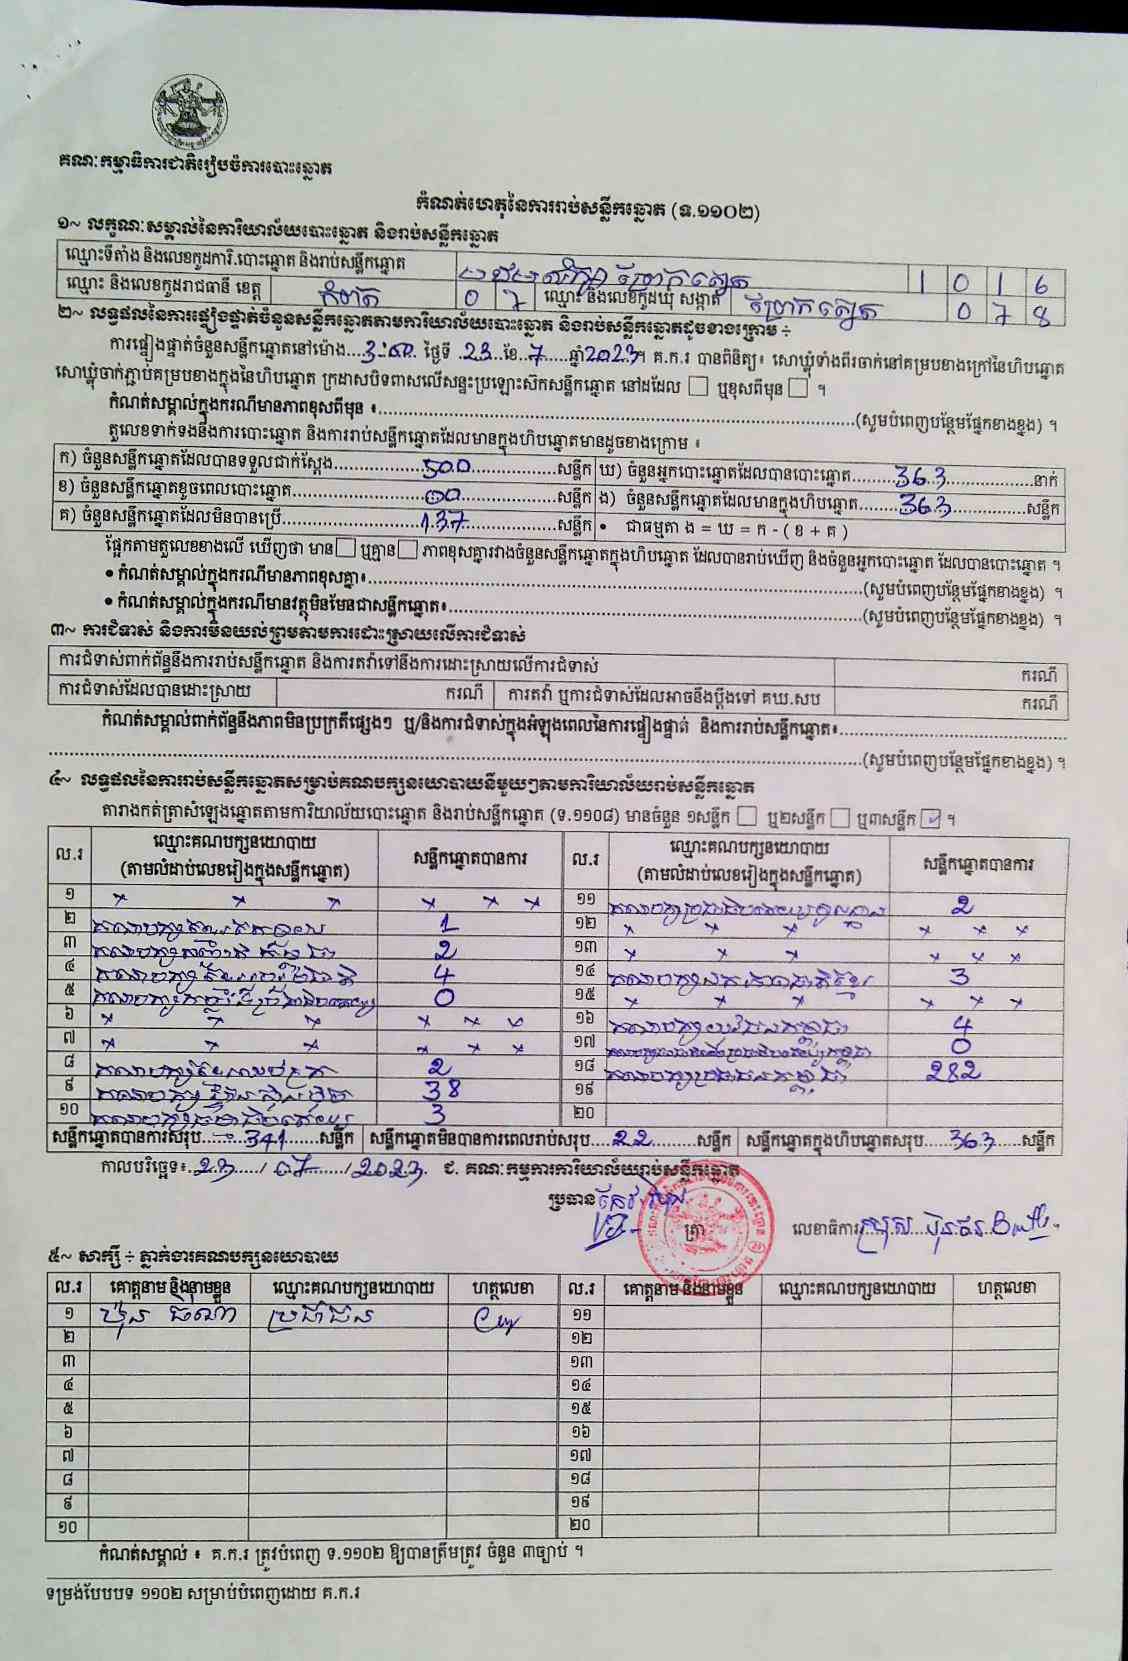 គណៈកម្មាធិការជាតិរៀបចំការបោះឆ្នោត
កំណត់ហេតុនៃការរាប់សន្លឹកឆ្នោត (ទ.១១០២)
១~ លក្ខណៈសម្គាល់នៃការិយាល័យបោះឆ្នោត និងរាប់សន្លឹកឆ្នោត
ឈ្មោះទីតាំង និងលេខកូដការិ.បោះឆ្នោត និងរាប់សន្លឹកឆ្នោត ព្រែកត្នោត 1 0 1 6
ឈ្មោះ និងលេខកូដរាជធានី ខេត្ត កំពត 0 7 ឈ្មោះ និងលេខកូដឃុំ សង្កាត់ ព្រែកត្នោត 0 7 8
២~ លទ្ធផលនៃការផ្ទៀងផ្ទាត់ចំនួនសន្លឹកឆ្នោតតាមការិយាល័យបោះឆ្នោត និងរាប់សន្លឹកឆ្នោតដូចខាងក្រោម ÷
ការផ្ទៀងផ្ទាត់ចំនួនសន្លឹកឆ្នោតនៅម៉ោង ថ្ងៃទី 23 ខែ 7 ឆ្នាំ 2023 ។ គ.ក.រ បានពិនិត្យ៖ សោឃ្លុំទាំងពីរចាក់នៅគម្របខាងក្រៅនៃហិបឆ្នោត
សោឃ្លុំចាក់ភ្ជាប់គម្របខាងក្នុងនៃហិបឆ្នោត ក្រដាសបិទពាសលើសន្ទះប្រឡោះស៊កសន្លឹកឆ្នោត នៅដដែល ឬខុសពីមុន ។
កំណត់សម្គាល់ក្នុងករណីមានភាពខុសពីមុន ៖ (សូមបំពេញបន្ថែមផ្នែកខាងខ្នង) ។
តួលេខទាក់ទងនឹងការបោះឆ្នោត និងការរាប់សន្លឹកឆ្នោតដែលមានក្នុងហិបឆ្នោតមានដូចខាងក្រោម ៖
ក) ចំនួនសន្លឹកឆ្នោតដែលបានទទួលជាក់ស្តែង 500 សន្លឹក ឃ) ចំនួនអ្នកបោះឆ្នោតដែលបានបោះឆ្នោត 363 នាក់
ខ) ចំនួនសន្លឹកឆ្នោតខូចពេលបោះឆ្នោត 00 សន្លឹក ង) ចំនួនសន្លឹកឆ្នោតដែលមានក្នុងហិបឆ្នោត 363 សន្លឹក
គ) ចំនួនសន្លឹកឆ្នោតដែលមិនបានប្រើ 137 សន្លឹក • ជាធម្មតា ង = ឃ = ក - ( ខ + គ )
ផ្អែកតាមតួលេខខាងលើ ឃើញថា មាន ឬគ្មាន ភាពខុសគ្នារវាងចំនួនសន្លឹកឆ្នោតក្នុងហិបឆ្នោត ដែលបានរាប់ឃើញ និងចំនួនអ្នកបោះឆ្នោត ដែលបានបោះឆ្នោត ។
• កំណត់សម្គាល់ក្នុងករណីមានភាពខុសគ្នា៖ (សូមបំពេញបន្ថែមផ្នែកខាងខ្នង) ។
• កំណត់សម្គាល់ក្នុងករណីមានវត្ថុមិនមែនជាសន្លឹកឆ្នោត៖ (សូមបំពេញបន្ថែមផ្នែកខាងខ្នង) ។
៣~ ការជំទាស់ និងការមិនយល់ព្រមតាមការដោះស្រាយលើការជំទាស់
ការជំទាស់ពាក់ព័ន្ធនឹងការរាប់សន្លឹកឆ្នោត និងការតវ៉ាទៅនឹងការដោះស្រាយលើការជំទាស់ ករណី
ការជំទាស់ដែលបានដោះស្រាយ ករណី ការតវ៉ា ឬការជំទាស់ដែលអាចនឹងប្តឹងទៅ គឃ.សប ករណី
កំណត់សម្គាល់ពាក់ព័ន្ធនឹងភាពមិនប្រក្រតីផ្សេងៗ ឬ/និងការជំទាស់ក្នុងអំឡុងពេលនៃការផ្ទៀងផ្ទាត់ និងការរាប់សន្លឹកឆ្នោត៖
(សូមបំពេញបន្ថែមផ្នែកខាងខ្នង) ។
៤~ លទ្ធផលនៃការរាប់សន្លឹកឆ្នោតសម្រាប់គណបក្សនយោបាយនីមួយៗតាមការិយាល័យរាប់សន្លឹកឆ្នោត
តារាងកត់ត្រាសំឡេងឆ្នោតតាមការិយាល័យបោះឆ្នោត និងរាប់សន្លឹកឆ្នោត (ទ.១១០៨) មានចំនួន ១សន្លឹក ឬ២សន្លឹក ឬ៣សន្លឹក ។
ល.រ ឈ្មោះគណបក្សនយោបាយ (តាមលំដាប់លេខរៀងក្នុងសន្លឹកឆ្នោត) សន្លឹកឆ្នោតបានការ ល.រ ឈ្មោះគណបក្សនយោបាយ (តាមលំដាប់លេខរៀងក្នុងសន្លឹកឆ្នោត) សន្លឹកឆ្នោតបានការ
១ x x x x x x ១១ 2
២ 1 ១២ x x x x x x
៣ 2 ១៣ x x x x x x
៤ 4 ១៤ 3
៥ 0 ១៥ x x x x x x
៦ x x x x x x ១៦ 4
៧ x x x x x x ១៧ 0
៨ 2 ១៨ គណបក្សប្រជាជនកម្ពុជា 282
៩ 38 ១៩
១០ 3 ២០
សន្លឹកឆ្នោតបានការសរុប 341 សន្លឹក សន្លឹកឆ្នោតមិនបានការពេលរាប់សរុប 22 សន្លឹក សន្លឹកឆ្នោតក្នុងហិបឆ្នោតសរុប 363 សន្លឹក
កាលបរិច្ឆេទ៖ 23 / 07 / 2023 ជ. គណៈកម្មការការិយាល័យរាប់សន្លឹកឆ្នោត
ប្រធាន ត្រា លេខាធិការ
៥~ សាក្សី ÷ ភ្នាក់ងារគណបក្សនយោបាយ
ល.រ គោត្តនាម និងនាមខ្លួន ឈ្មោះគណបក្សនយោបាយ ហត្ថលេខា ល.រ គោត្តនាម និងនាមខ្លួន ឈ្មោះគណបក្សនយោបាយ ហត្ថលេខា
១ ប្រជាជន ១១
២ ១២
៣ ១៣
៤ ១៤
៥ ១៥
៦ ១៦
៧ ១៧
៨ ១៨
៩ ១៩
១០ ២០
កំណត់សម្គាល់ ៖ គ.ក.រ ត្រូវបំពេញ ទ.១១០២ ឱ្យបានត្រឹមត្រូវ ចំនួន ៣ច្បាប់ ។
ទម្រង់បែបបទ ១១០២ សម្រាប់បំពេញដោយ គ.ក.រ